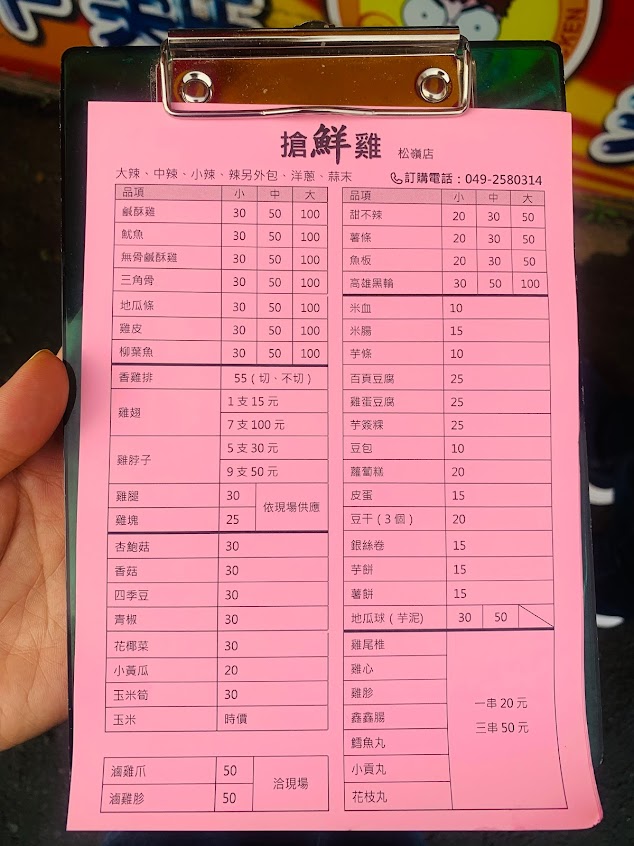 KEN
搶鮮雞 松嶺店
大辣、中辣、小辣、辣另外包、洋蔥、蒜末
訂購電話：049-2580314
品項 小 中 大
鹹酥雞 30 50 100
魷魚 30 50 100
無骨鹹酥雞 30 50 100
三角骨 30 50 100
地瓜條 30 50 100
雞皮 30 50 100
柳葉魚 30 50 100
香雞排 55 ( 切、不切 )
雞翅 1 支 15 元
7 支 100 元
雞脖子 5 支 30 元
9 支 50 元
雞腿 30 依現場供應
雞塊 25
杏鮑菇 30
香菇 30
四季豆 30
青椒 30
花椰菜 30
小黃瓜 20
玉米筍 30
玉米 時價
滷雞爪 50 洽現場
滷雞胗 50
品項 小 中 大
甜不辣 20 30 50
薯條 20 30 50
魚板 20 30 50
高雄黑輪 30 50 100
米血 10
米腸 15
芋條 10
百頁豆腐 25
雞蛋豆腐 25
芋簽粿 25
豆包 10
蘿蔔糕 20
皮蛋 15
豆干 ( 3 個 ) 20
銀絲卷 15
芋餅 15
薯餅 15
地瓜球 ( 芋泥 ) 30 50
雞尾椎
雞心
雞胗
鑫鑫腸
鱈魚丸
小貢丸
花枝丸
一串 20 元
三串 50 元